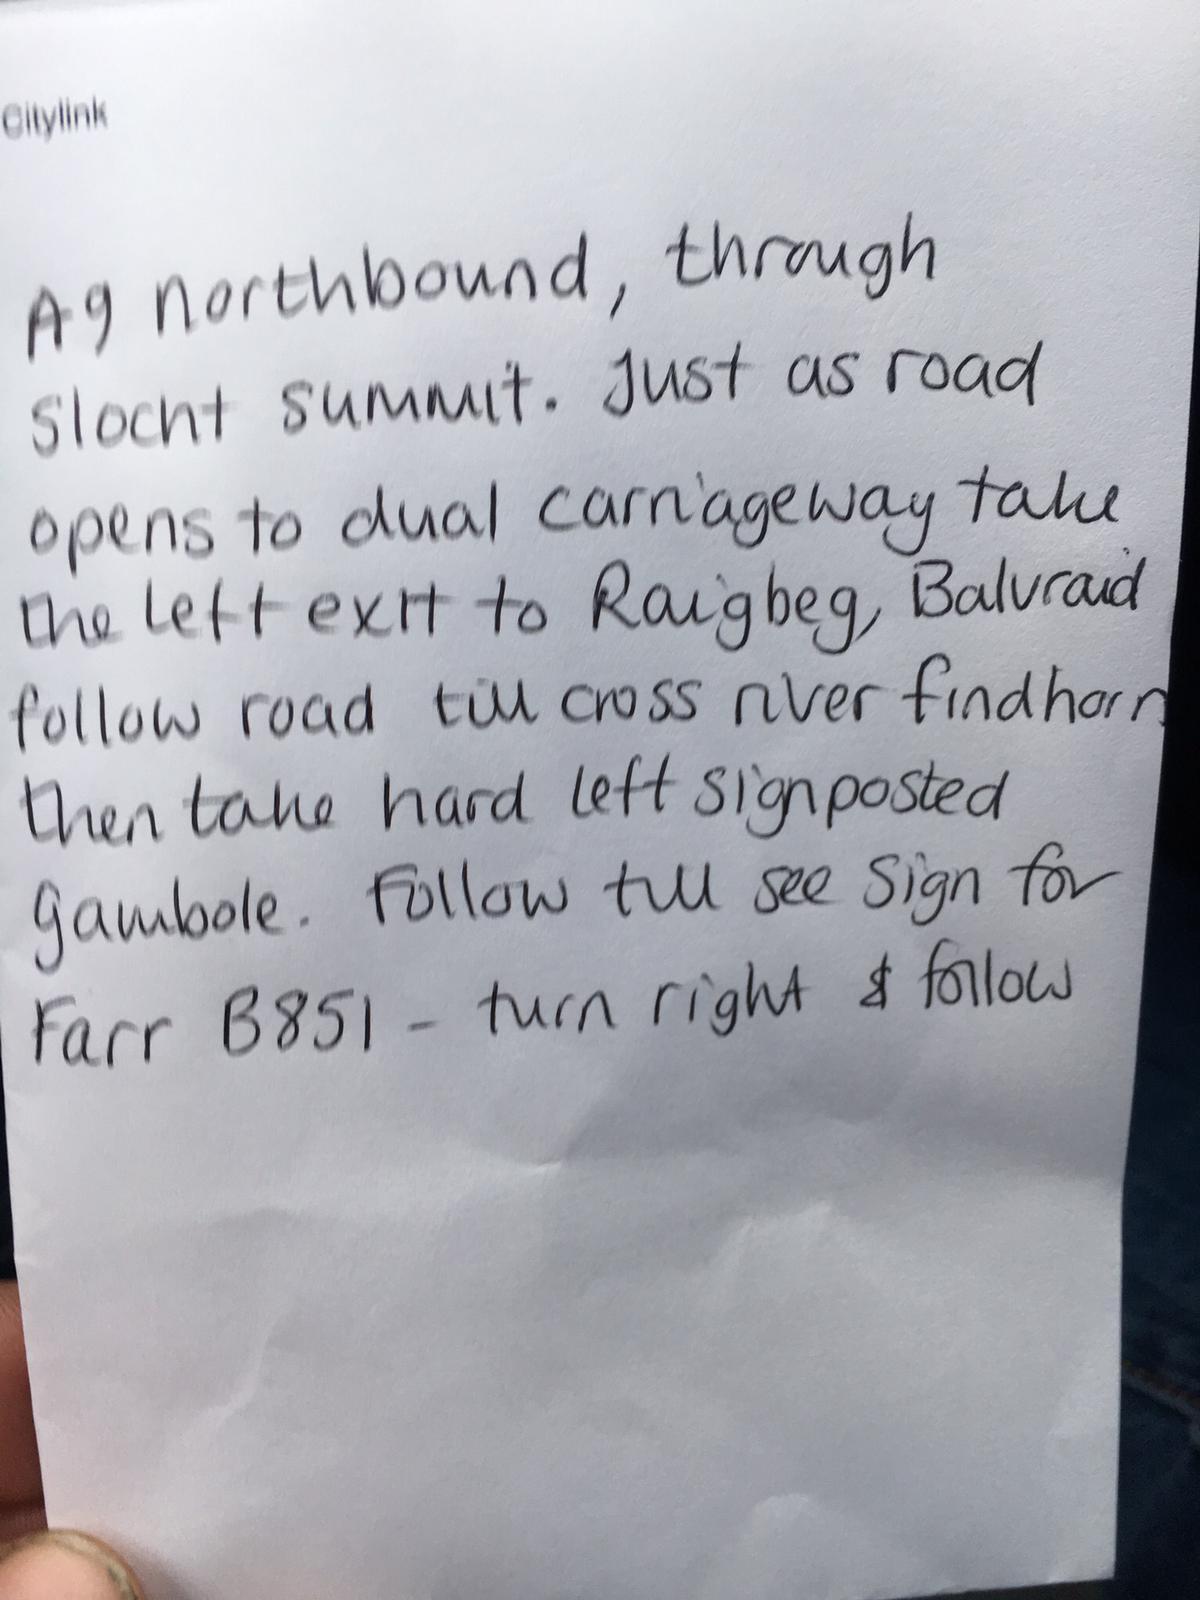 Citylink
A9 northbound, through
Slocht summit. Just as road
opens to dual carriageway take
the left exit to Raigbeg, Balvraid
follow road till cross river findhorn
then take hard left signposted
gambole. Follow till see sign for
Farr B851 - turn right & follow